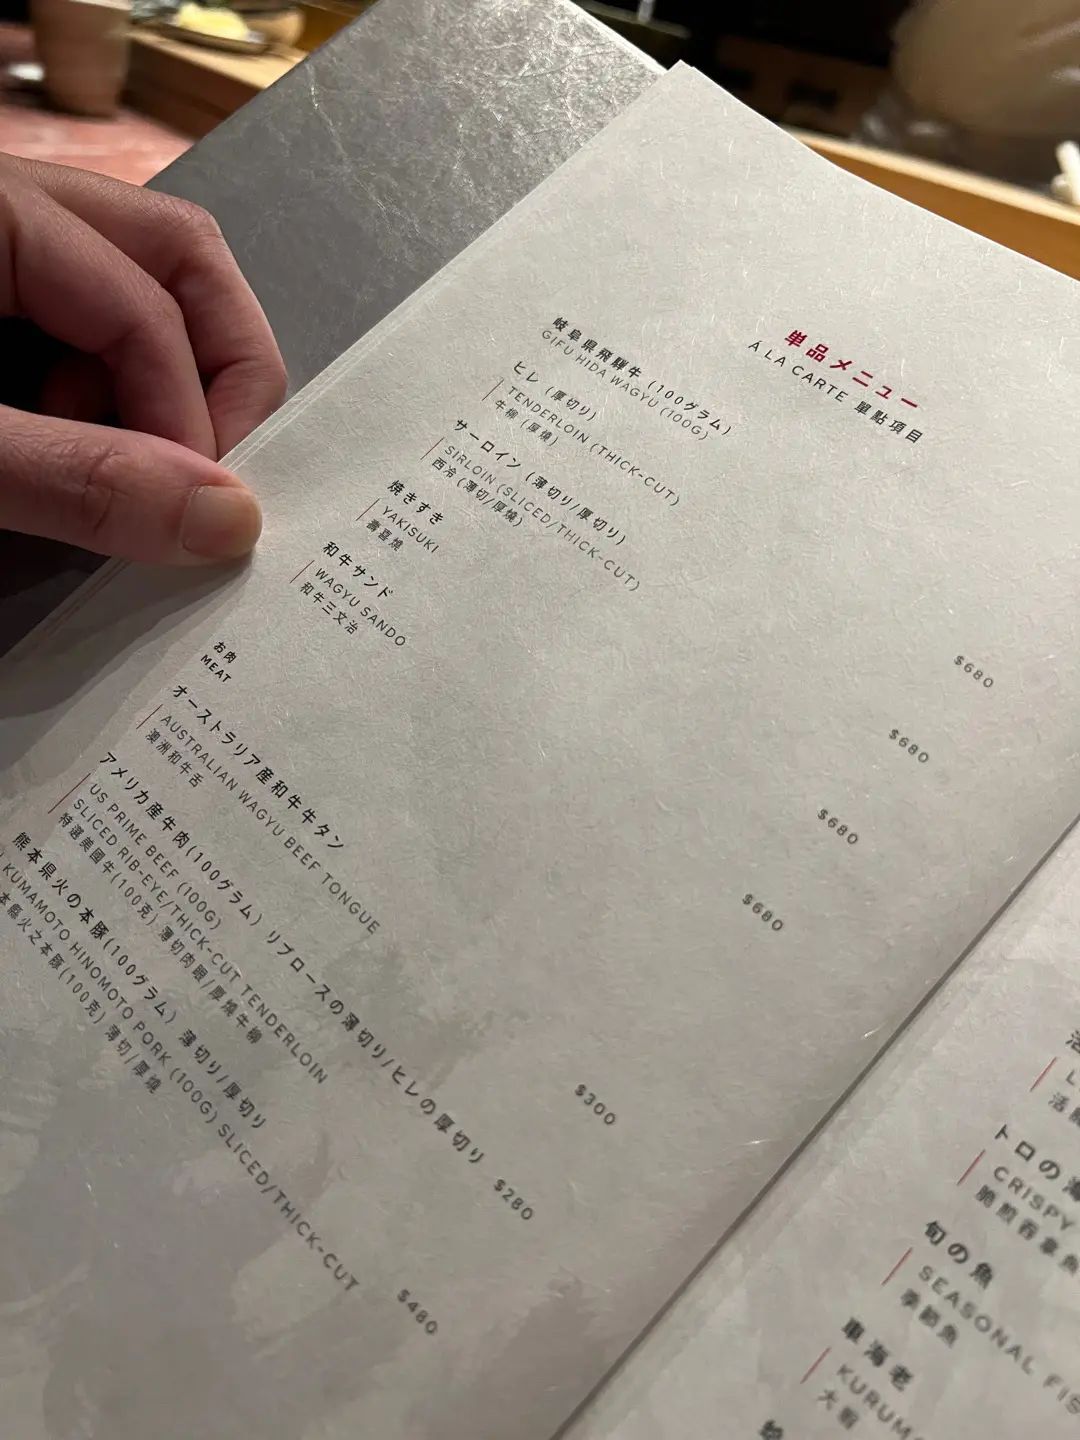 単品メニュー
Á LA CARTE 單點項目
岐阜県飛騨牛 (100グラム)
GIFU HIDA WAGYU (100G)
ヒレ (厚切り)
TENDERLOIN (THICK-CUT)
牛柳 (厚燒)
$680
サーロイン (薄切り/厚切り)
SIRLOIN (SLICED/THICK-CUT)
西冷 (薄切/厚燒)
$680
焼きすき
YAKISUKI
壽喜燒
$680
和牛サンド
WAGYU SANDO
和牛三文治
$680
お肉
MEAT
オーストラリア産和牛牛タン
AUSTRALIAN WAGYU BEEF TONGUE
澳洲和牛舌
$300
アメリカ産牛肉(100グラム) リブロースの薄切り/ヒレの厚切り
US PRIME BEEF (100G)
SLICED RIB-EYE/THICK-CUT TENDERLOIN
特選美國牛(100克) 薄切肉眼/厚燒牛柳
$280
熊本県火の本豚(100グラム) 薄切り/厚切り
KUMAMOTO HINOMOTO PORK (100G) SLICED/THICK-CUT
本縣火之本豚(100克) 薄切/厚燒
$480
活
L
活
トロの
CRISPY
脆煎吞拿魚
旬の魚
SEASONAL FIS
季節魚
車海老
KURUM
大蝦